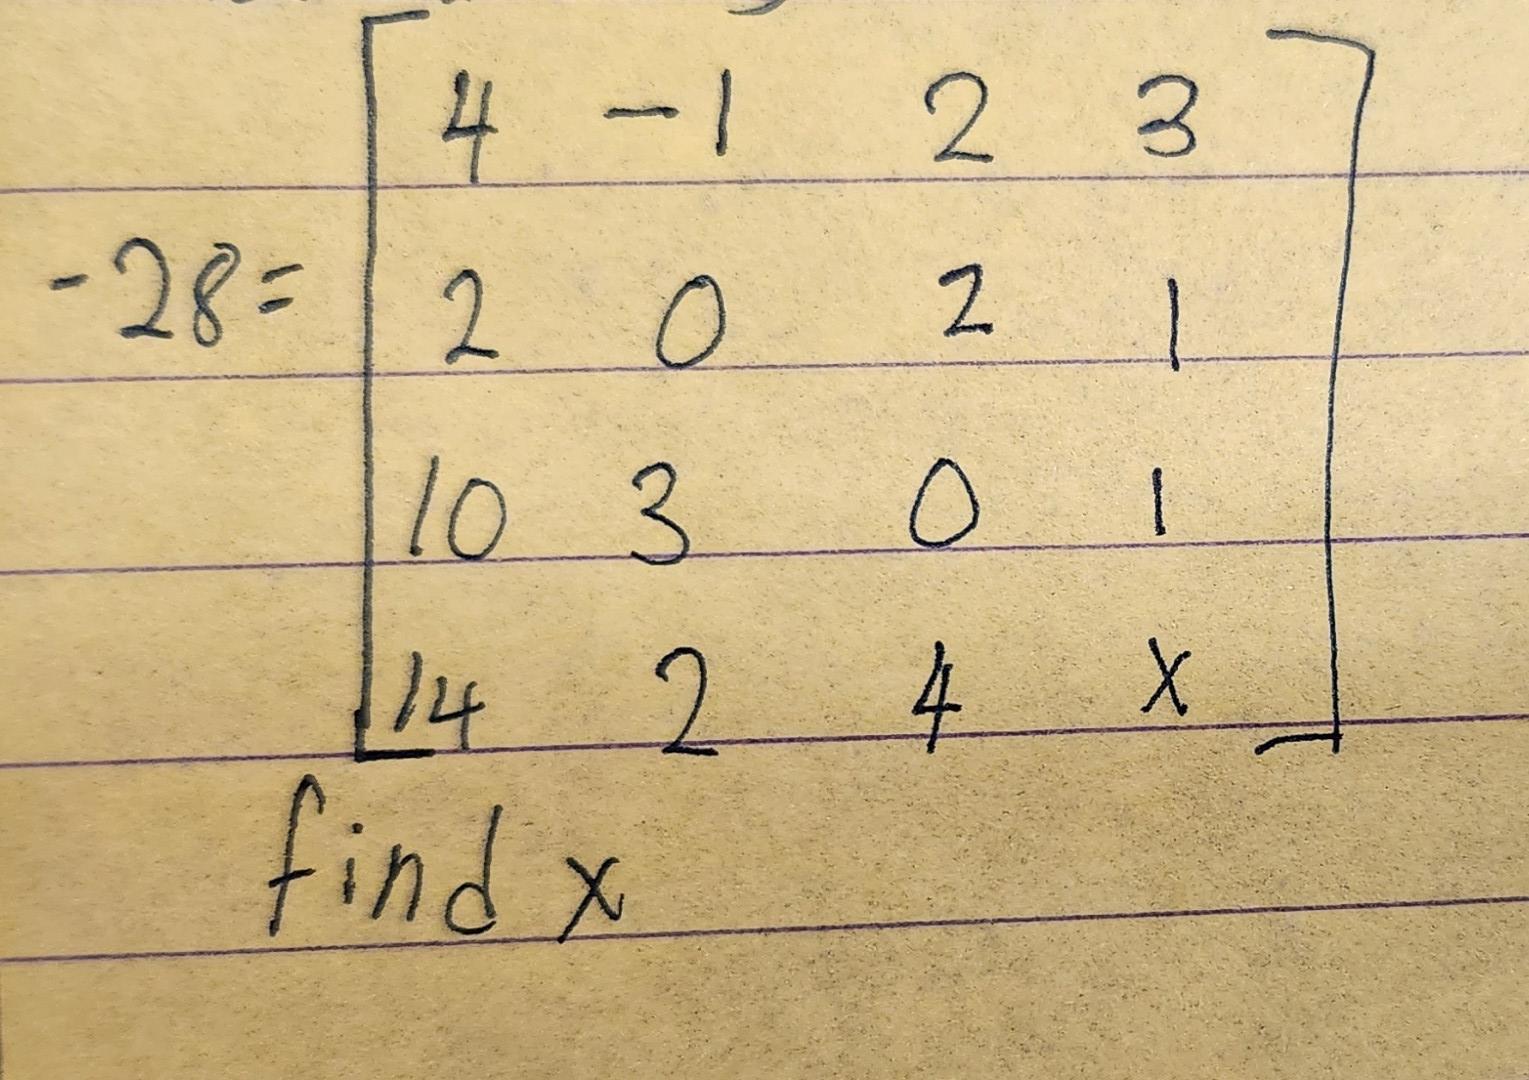 4 -1 2 3
-28= 2 0 2 1
10 3 0 1
14 2 4 x
find x